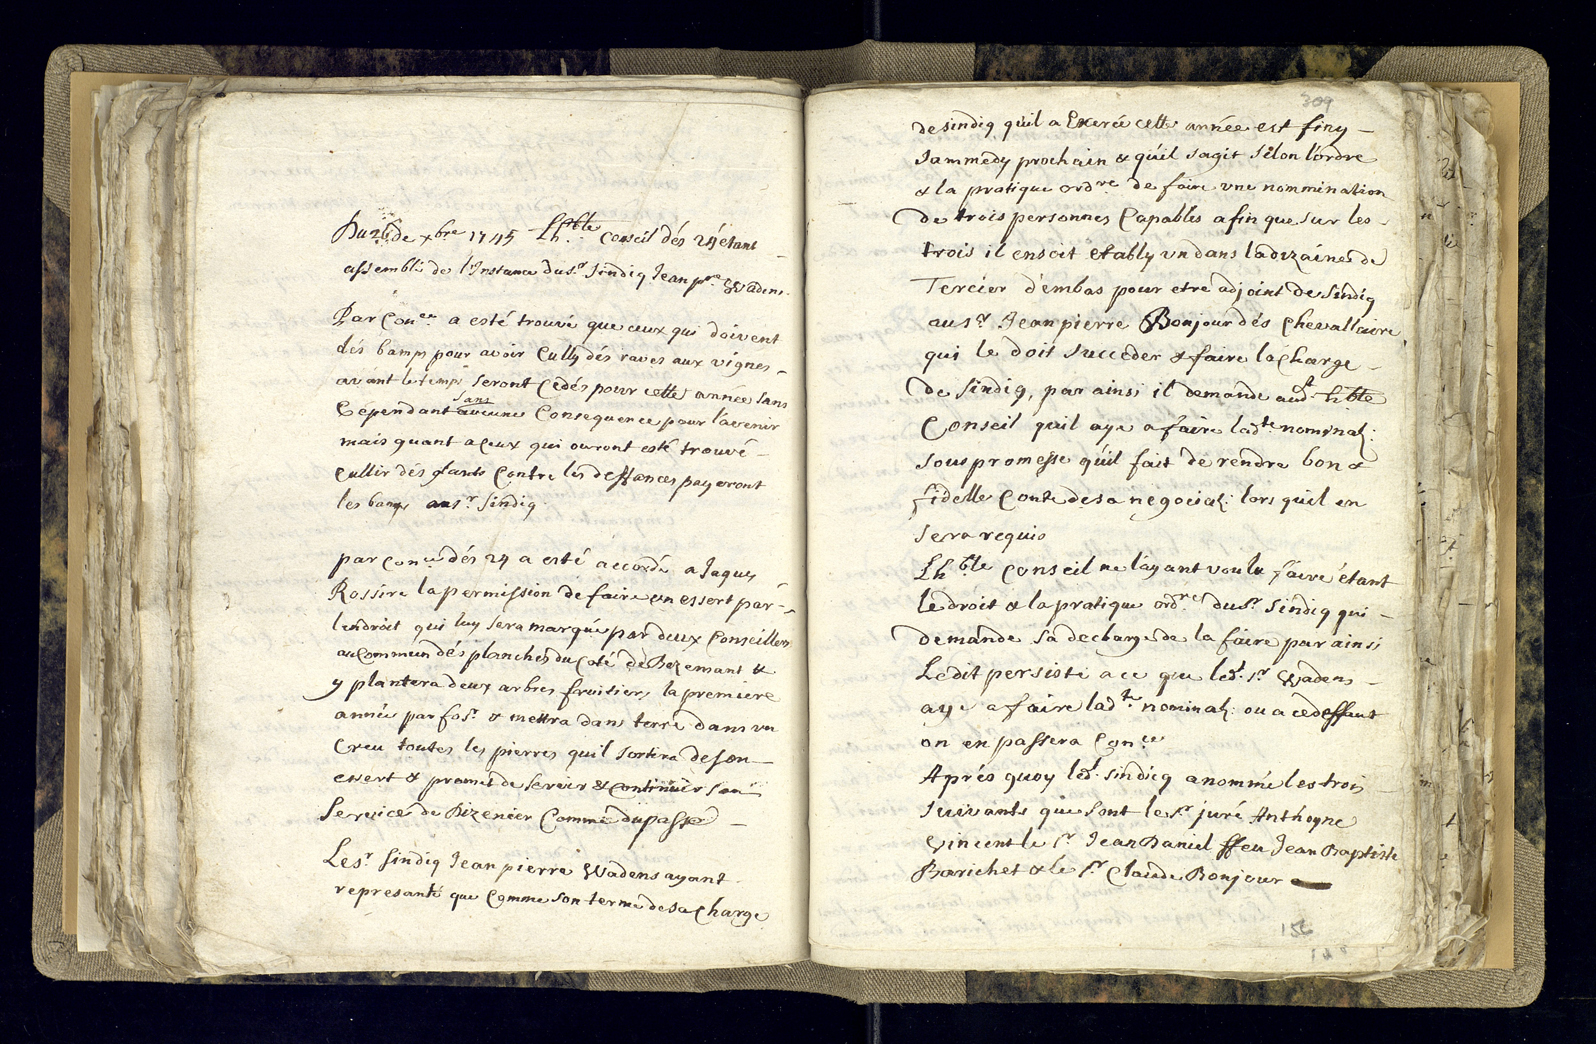 Du 26 de xbre 1745 Lh.ble Conseil dés 24 étant
assemblé de l'Instance du Sr Sindiq Jean pre Wadens.
Par Con.ce a esté trouvé que ceux qui doivent
dés bamps pour avoir Cully dés raves aux vignes
avánt le temps seront Cedés pour cette année Sans
Cépendant sans aucune Consequence pour l'avenir
mais quant a ceux qui auront esté trouvé
Cullir dés glants Contre les deffances payeront
les bamps au Sr Sindiq
par Con.ce dés 24 a esté accordé a Jaques
Rossire la permission de faire un essert par
lendroit qui luy sera marqué par deux Conseillers
au Commun dés planches du Coté de Bezemant &
y plantera deux arbres fruitiers la premiere
année par fosr & mettra dans terre dans un
Creu toutes les pierres quil sortira de son
essert & promet de servir & Continuer son
Service de Dizenier Comme du passé
Le Sr Sindiq Jean pierre Wadens ayant
represanté que Comme son terme de sa Charge
309
de sindiq quil a Exercé cette année est finy
Sammedy prochain & qu'il sagit Sélon l'ordre
& la pratique ordre de faire une nommination
de trois personnes Capables afin que Sur les
trois il en soit etably un dans la dizaine de
Tercier d'embas pour etre adjoint de Sindiq
au Sr Jean pierre Bonjour dés Chevallaire
qui le doit succeder & faire la Charge
de Sindiq, par ainsi il demande aud.t h.ble
Conseil quil aye a faire lad.te nominat:
sous promesse qu'il fait de rendre bon &
fidelle Conte de sa negociat: lors quil en
sera requis
Lh.ble Conseil ne láyant voulu faire étant
le droit & la pratique ord.re du Sr Sindiq qui
demande sa decharge de la faire par ainsi
Le dit persiste a ce que led.t Sr Wadens
aye a faire lad.te nominat: ou a ce deffaut
on en passera Con.ce
Aprés quoy led.t Sindicq a nommé les trois
suivants que sont le Sr juré Anthoyne
Vincent le Sr Jean Daniel ffeu Jean Baptiste
Barichet & le Sr Claude Bonjour
156